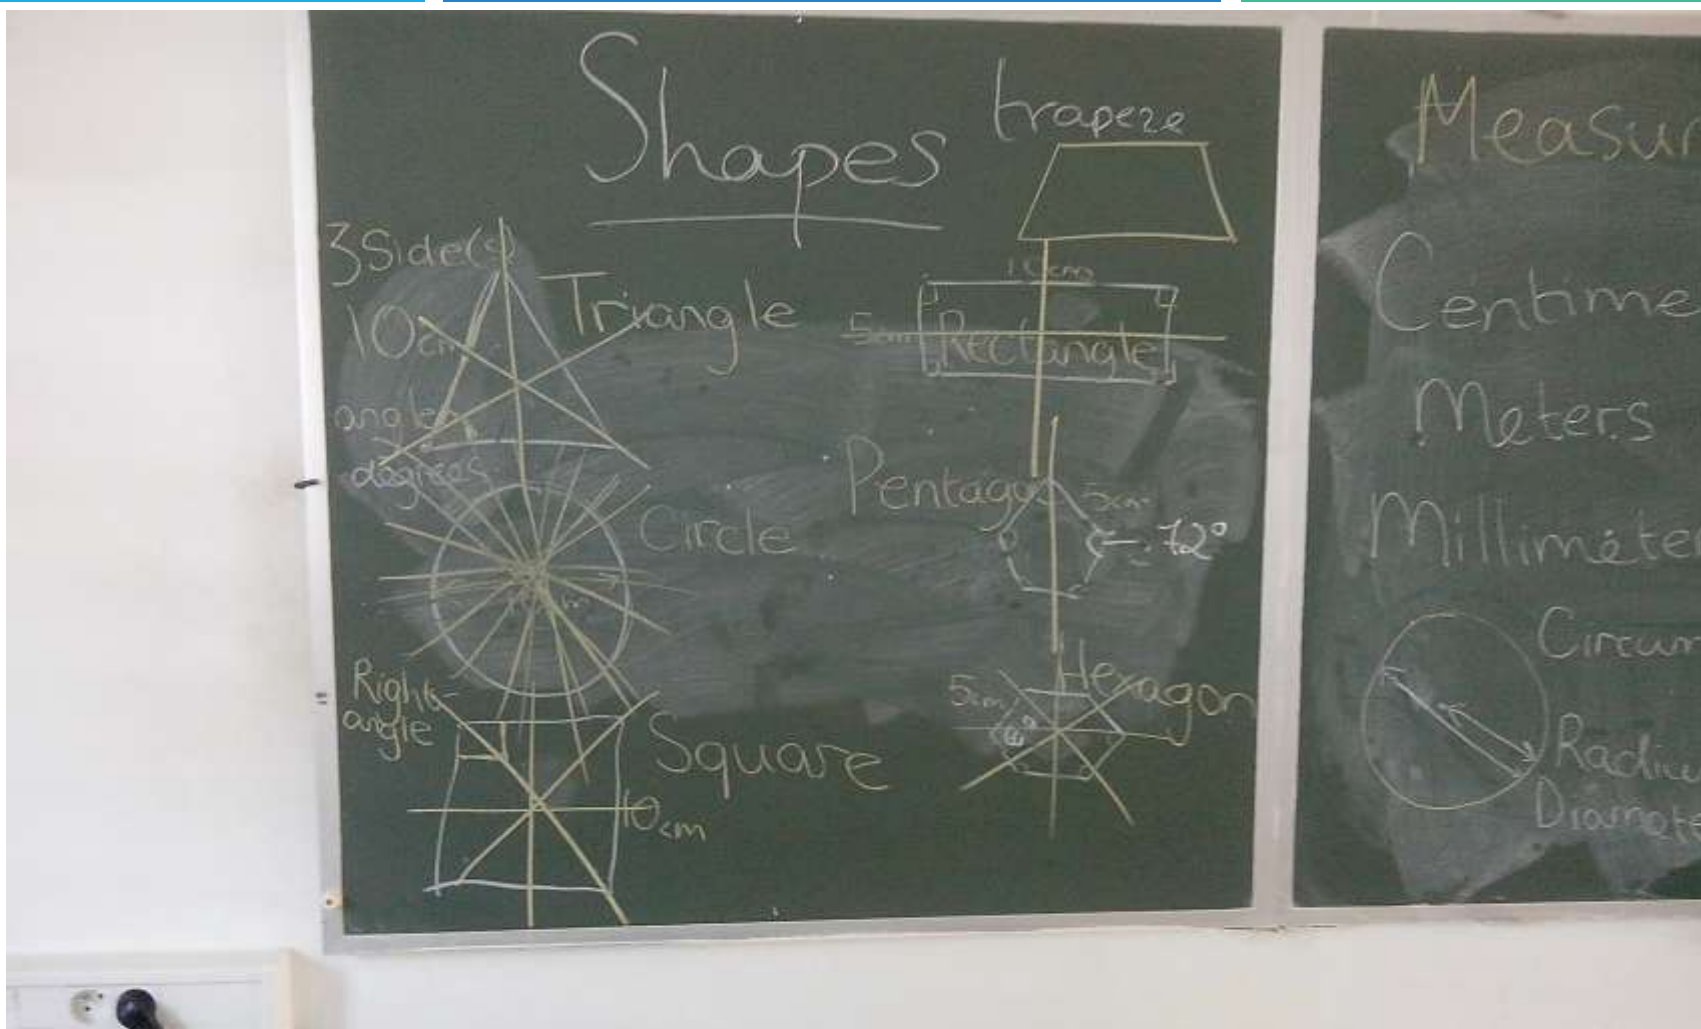 Shapes
trapeze
3 Side(s)
Triangle
10cm
10cm
5cm
Rectangle
angle
degrees
Pentagon
5cm
72°
Circle
Right-
angle
Square
10cm
5cm
Hexagon
Measur
Centime
Meters
Millimeter
Circum
Radiu
Diamete